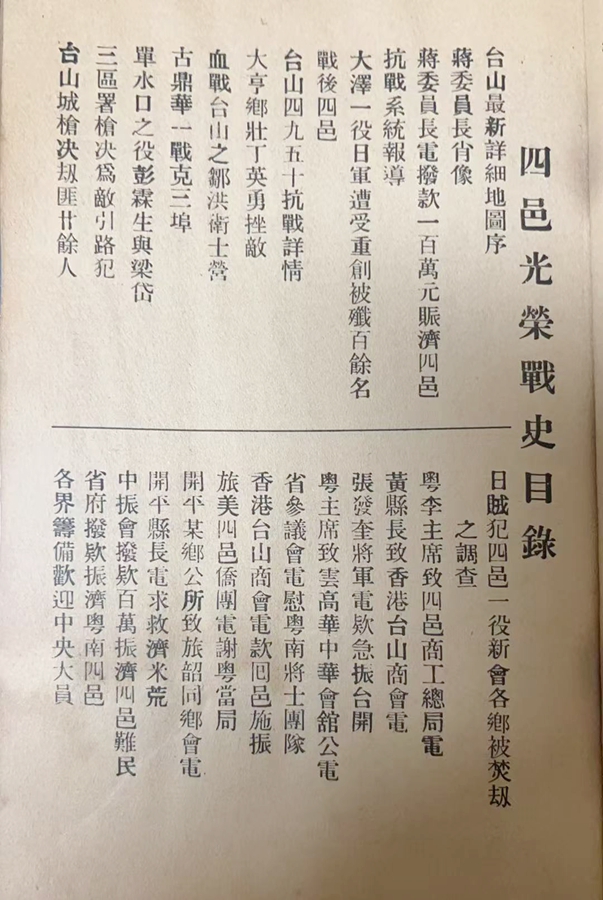 四邑光榮戰史目錄
台山最新詳細地圖序
蔣委員長肖像
蔣委員長電撥款一百萬元賑濟四邑
抗戰系統報導
大澤一役日軍遭受重創被殲百餘名
戰後四邑
台山四九五十抗戰詳情
大亨鄉壯丁英勇挫敵
血戰台山之鄒洪衛士營
古鼎華一戰克三埠
單水口之役彭霖生與梁岱
三區署槍决爲敵引路犯
台山城槍决刼匪廿餘人
日賊犯四邑一役新會各鄉被焚刼
之調查
粵李主席致四邑商工總局電
黃縣長致香港台山商會電
張發奎將軍電欵急振台開
粵主席致雲高華中華會舘公電
省參議會電慰粵南將士團隊
香港台山商會電款囘邑施振
旅美四邑僑團電謝粵當局
開平某鄉公所致旅韶同鄉會電
開平縣長電求救濟米荒
中振會撥欵百萬振濟四邑難民
省府撥欵振濟粵南四邑
各界籌備歡迎中央大員